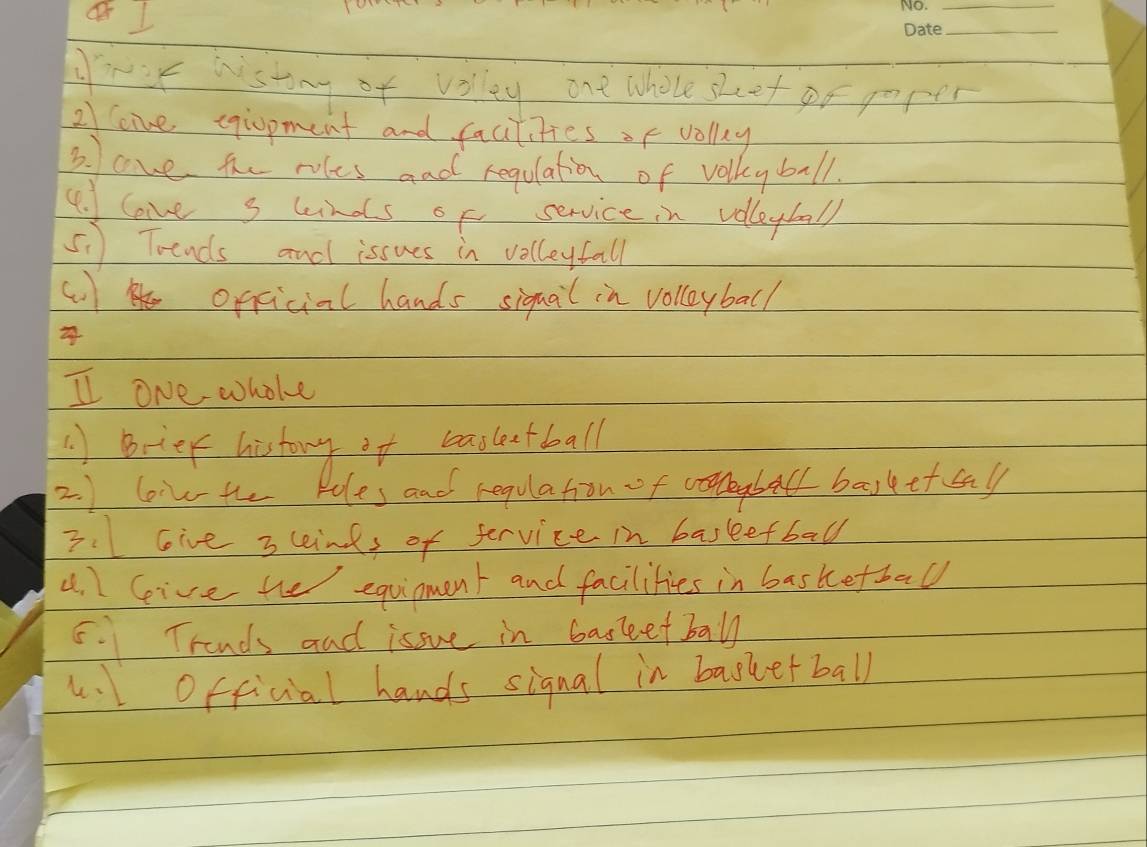 I
No.
Date
1.) history of volley one whole sheet of paper
2) Give eqiupment and facilities of volley
3.) Give the rules and regulation of volleyball.
4.) Give 3 kinds of service in volleyball
5.) Trends and issues in volleyball
6.) Official hands signal in volleyball
II ONe whole
1.) Brief history of basketball
2.) Give the Rules and regulation of basketball
3.) Give 3 kinds of service in basketball
4.) Give the equipment and facilities in basketball
5.) Trends and issue in basketball
6.) Official hands signal in basketball